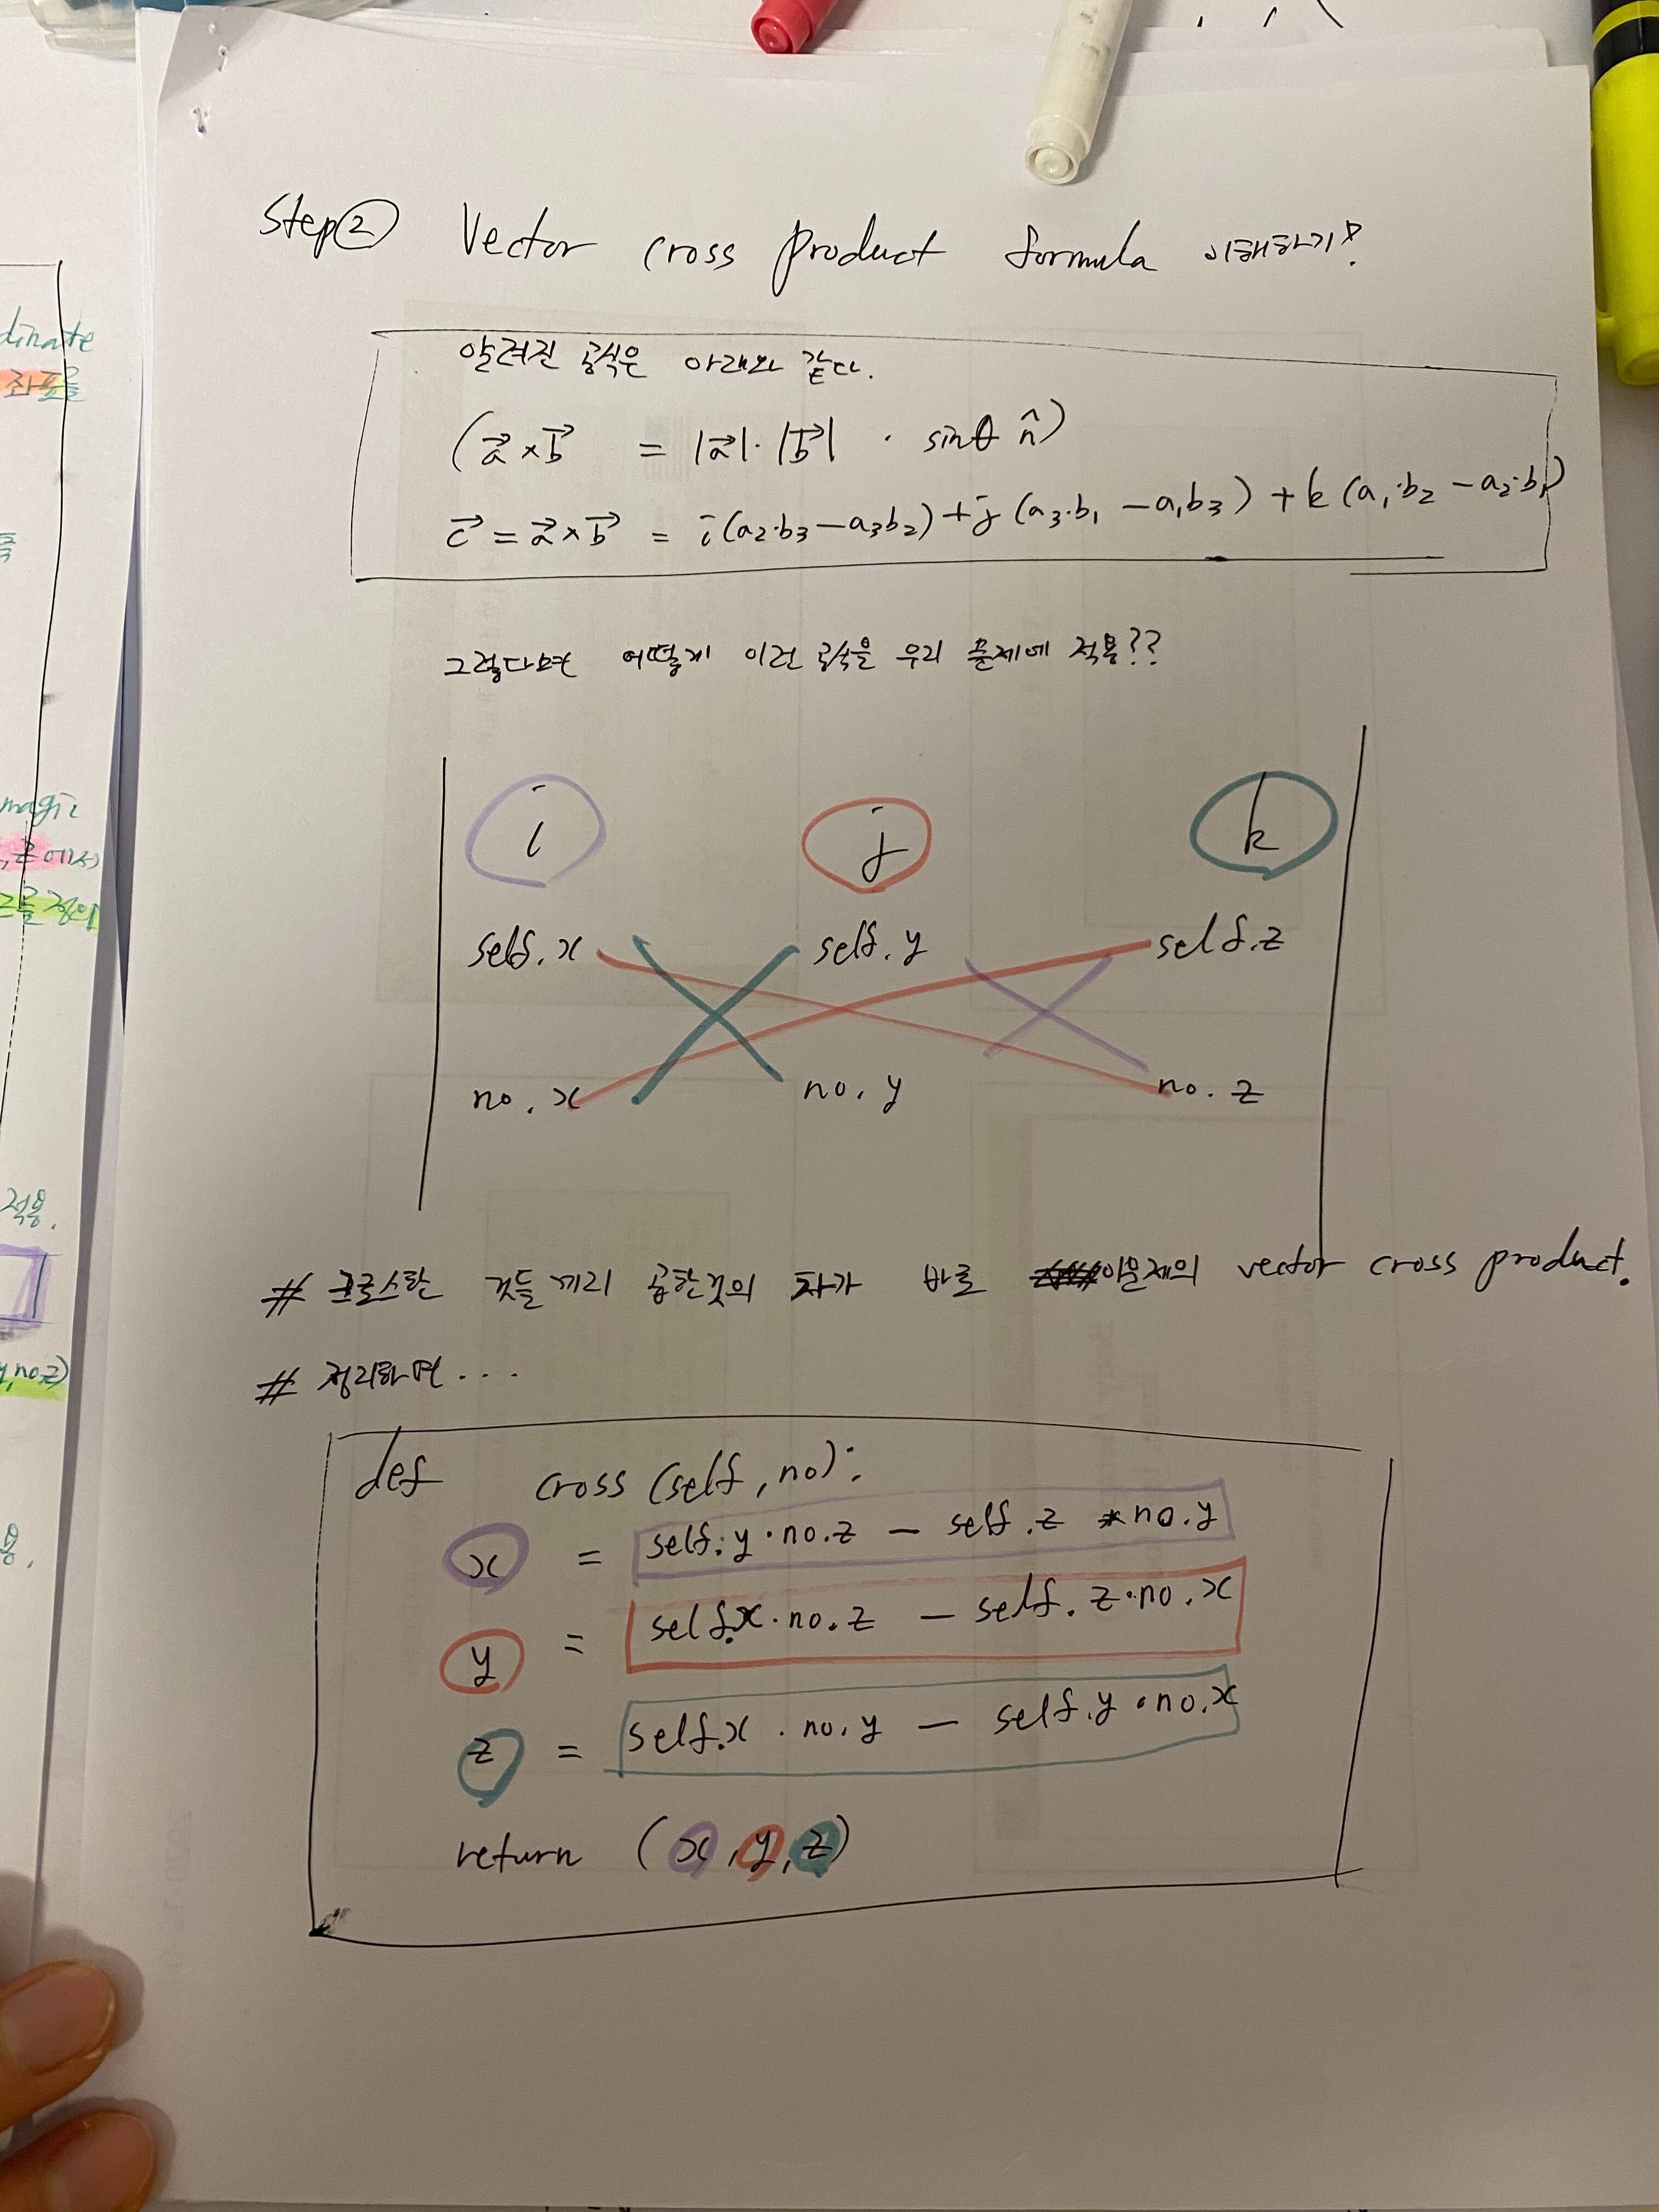 Step② Vector cross product formula 이해하기!
알려진 공식은 아래와 같다.
(a⃗×b⃗ = |a⃗|·|b⃗| · sinθ n̂)
c⃗ = a⃗×b⃗ = i(a₂·b₃ − a₃b₂) + j(a₃·b₁ − a₁b₃) + k(a₁·b₂ − a₂·b₁)
그렇다면 어떻게 이런 공식을 우리 문제에 적용??
i j k
self.x self.y self.z
no.x no.y no.z
# 크로스한 것들끼리 곱한것의 차가 바로 이문제의 vector cross product.
# 정리하면...
def cross (self, no):
x = self.y · no.z − self.z * no.y
y = self.x · no.z − self.z · no.x
z = self.x · no.y − self.y · no.x
return (x, y, z)
dinate
좌표를
magic
적용.
y, no.z)